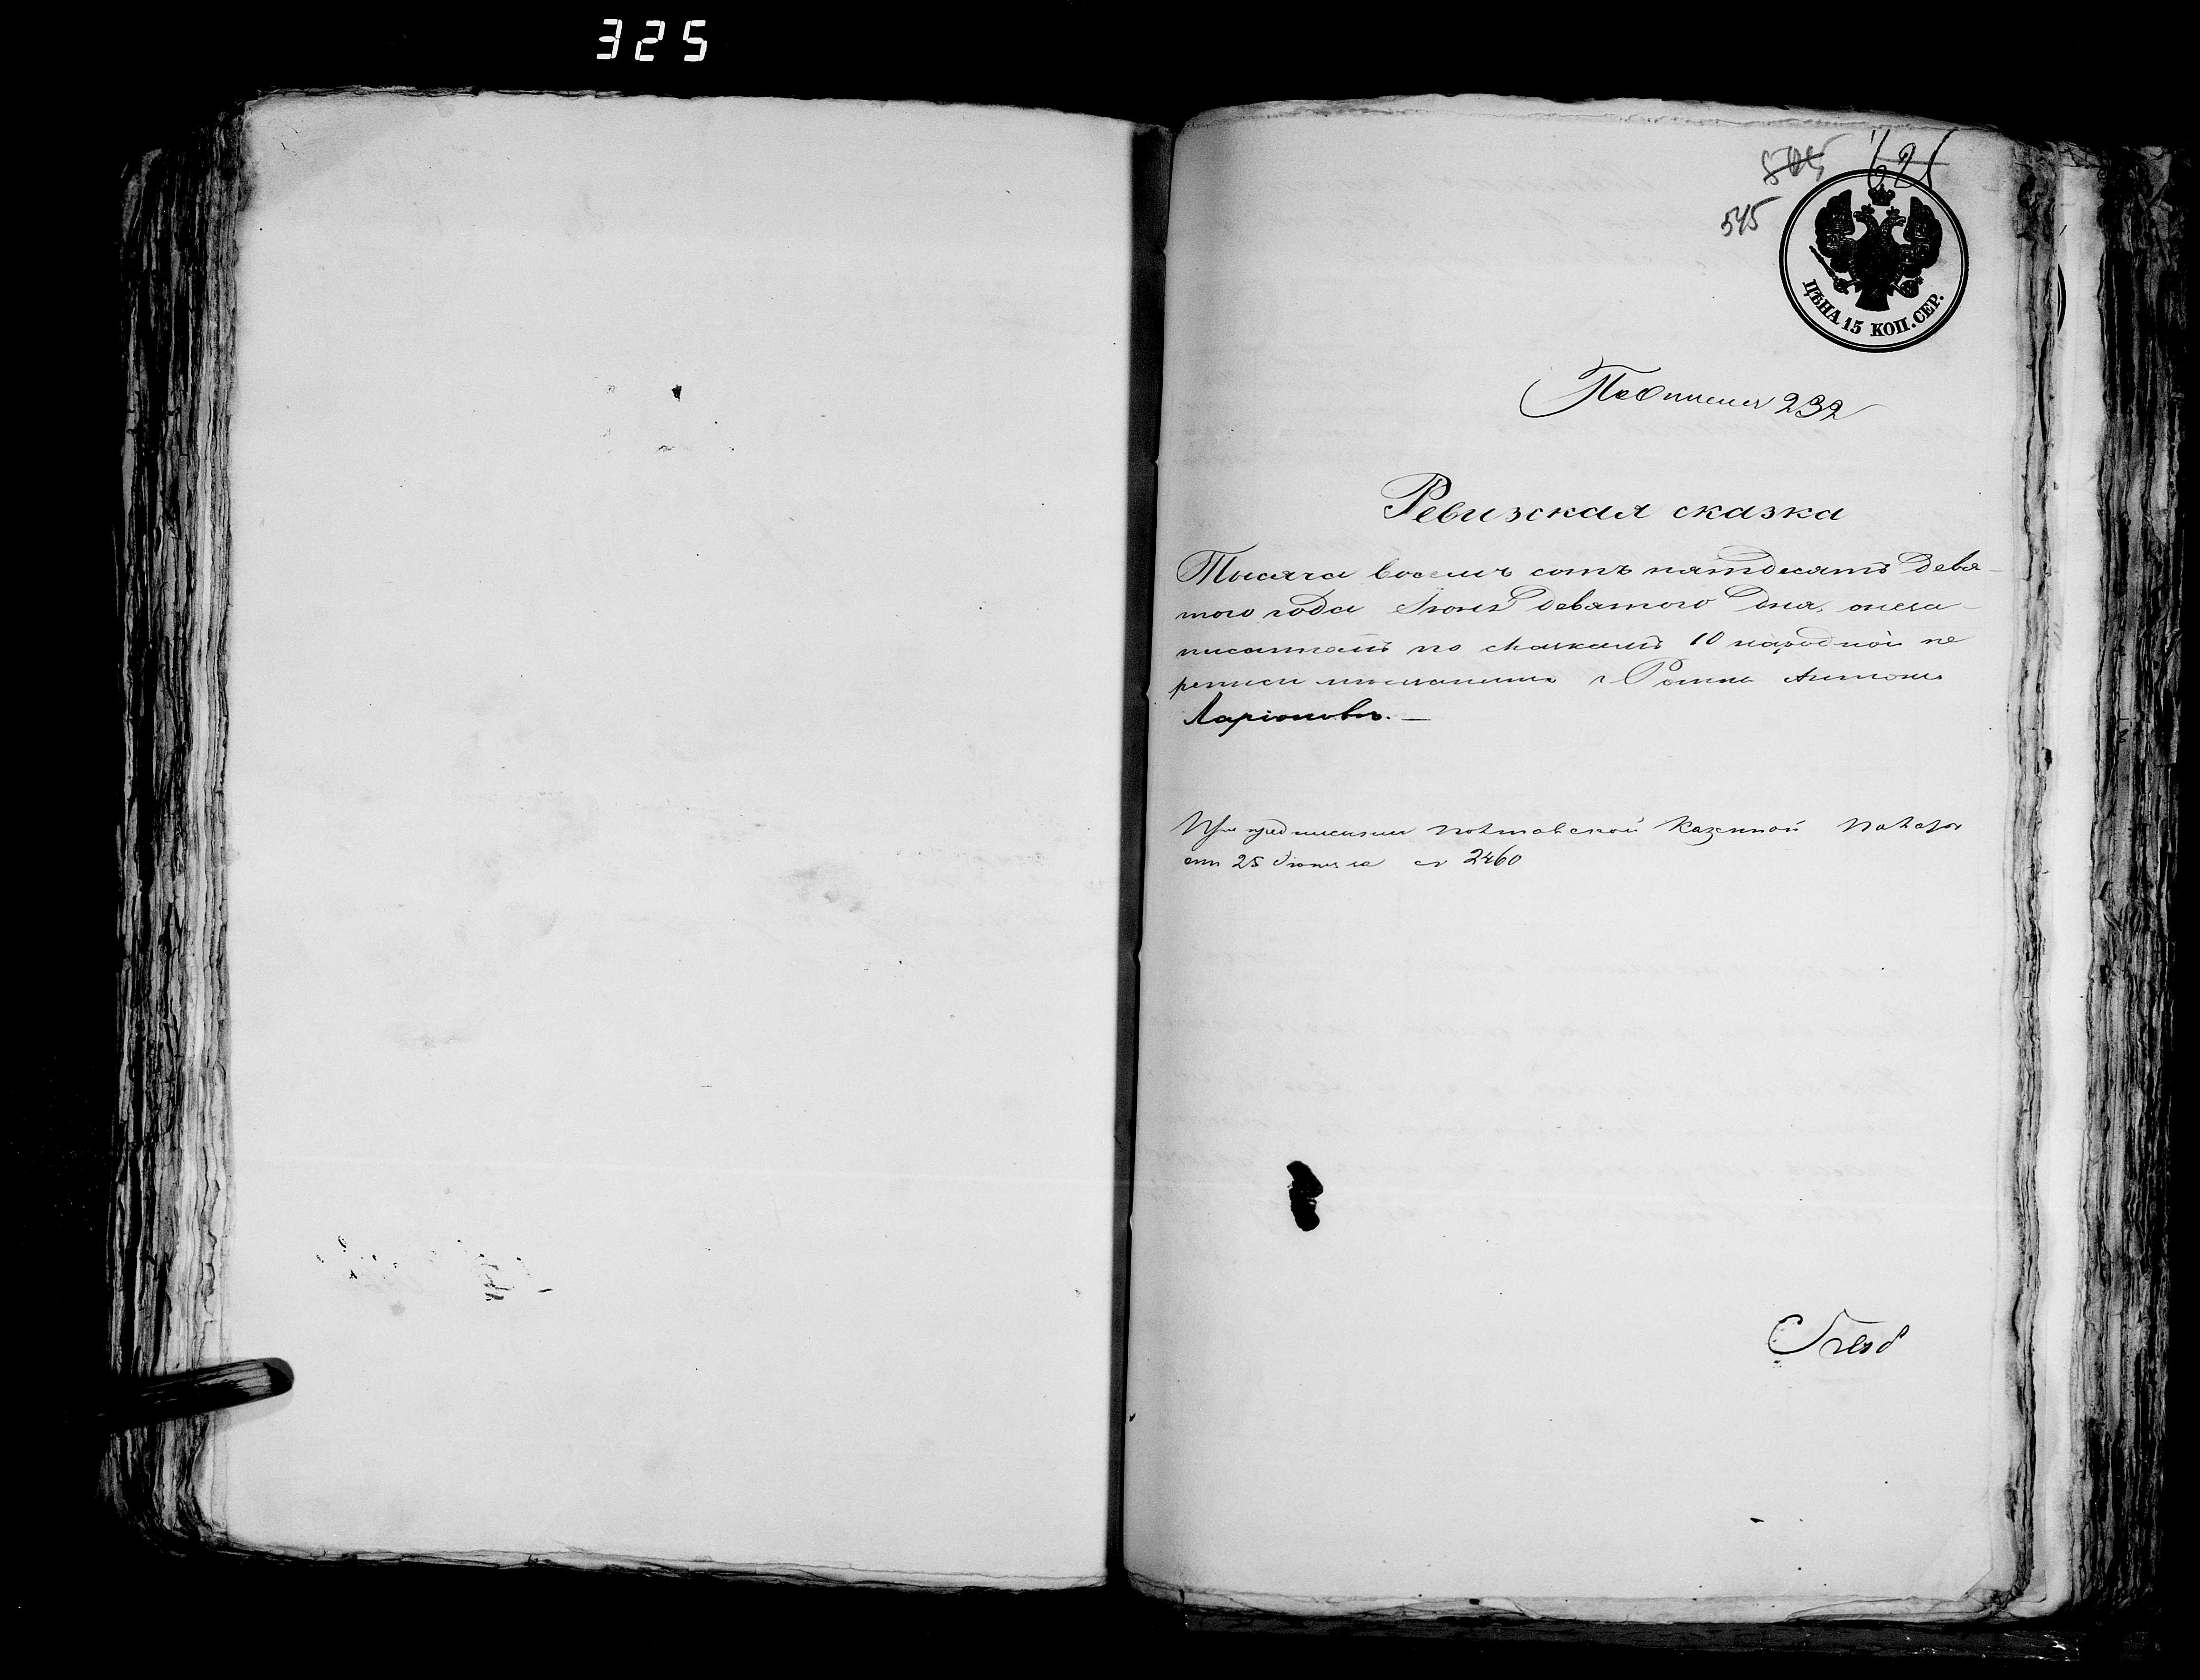 325
505 621
545
ЦѢНА 15 КОП. СЕР.
По описи 232
Ревизская сказка
Тысяча восемь сотъ пятдесятъ девя-
того года Іюня девятого дня,
по сказкамъ 10 народной пе
реписи мѣщанина г Ромна Антона
Ларіонова. —
При предписаніи Полтавской Казенной Палаты
отъ 25 Іюня за № 2460